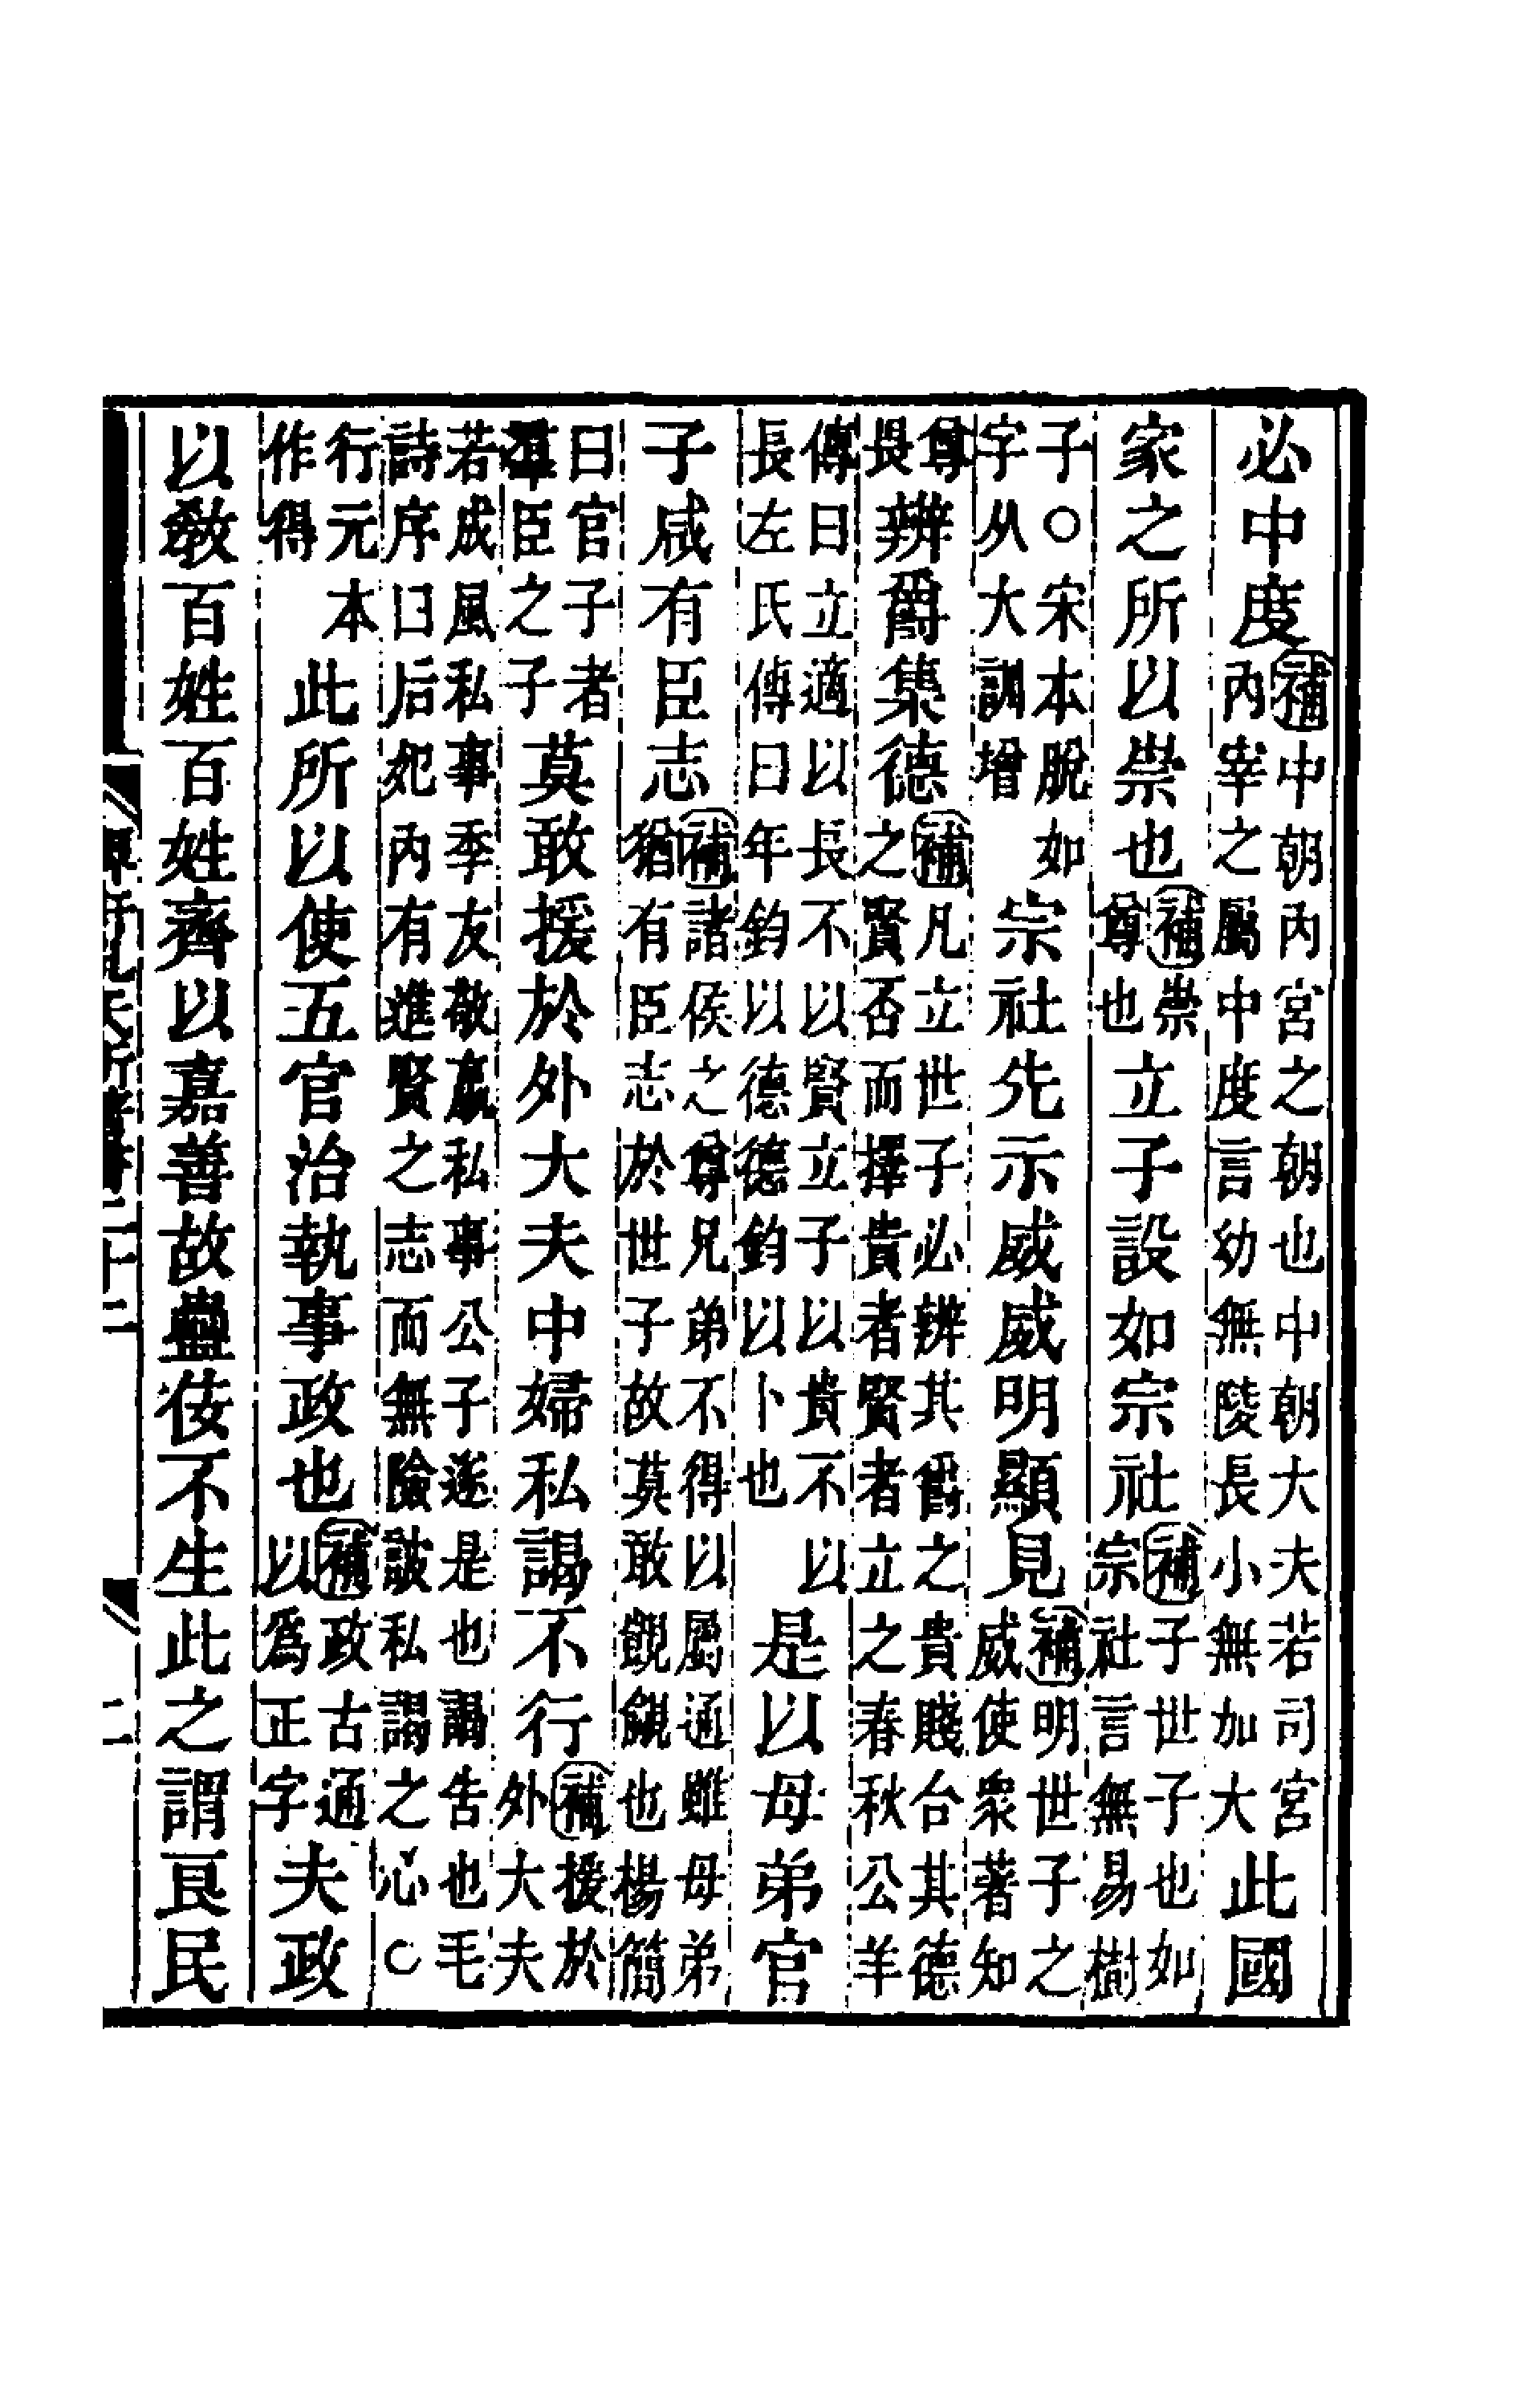 必中度補中朝內宮之朝也中朝大夫若司宮內宰之屬中度言幼無陵長小無加大此國
家之所以崇也補崇尊也立子設如宗社補子世子也如宗社言無易樹
子○宋本脫如字从大訓增宗社先示威威明顯見補明世子之威使衆著知
尊長辨爵集德補凡立世子必辨其爵之貴賤台其德之賢否而擇貴者賢者立之春秋公羊
傳曰立適以長不以賢立子以貴不以長左氏傳曰年鈞以德德鈞以卜也是以母弟官
子咸有臣志補諸侯之尊兄弟不得以屬通雖母弟猶有臣志於世子故莫敢覬覦也楊簡
曰官子者羣臣之子莫敢援於外大夫中婦私謁不行補援於外大夫
若成風私事季友敬嬴私事公子遂是也謁告也毛詩序曰后妃內有進賢之志而無險詖私謁之心○
行元本作得此所以使五官治執事政也補政古通以爲正字夫政
以敎百姓百姓齊以嘉善故蠱佞不生此之謂良民